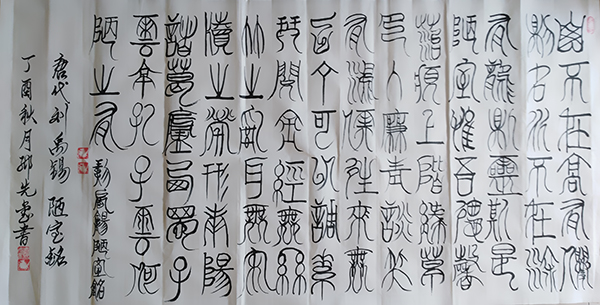 山不在高有僊
則名水不在深
有龍則靈斯是
陋室惟吾德馨
苔痕上階緑草
色入簾青談笑
有鴻儒往來無
白丁可以調素
琴閱金經無絲
竹之亂耳無案
牘之勞形南陽
諸葛廬西蜀子
雲亭孔子雲何
陋之有 劉禹錫陋室銘
唐代刘禹锡 陋室铭
丁酉秋月邵先書